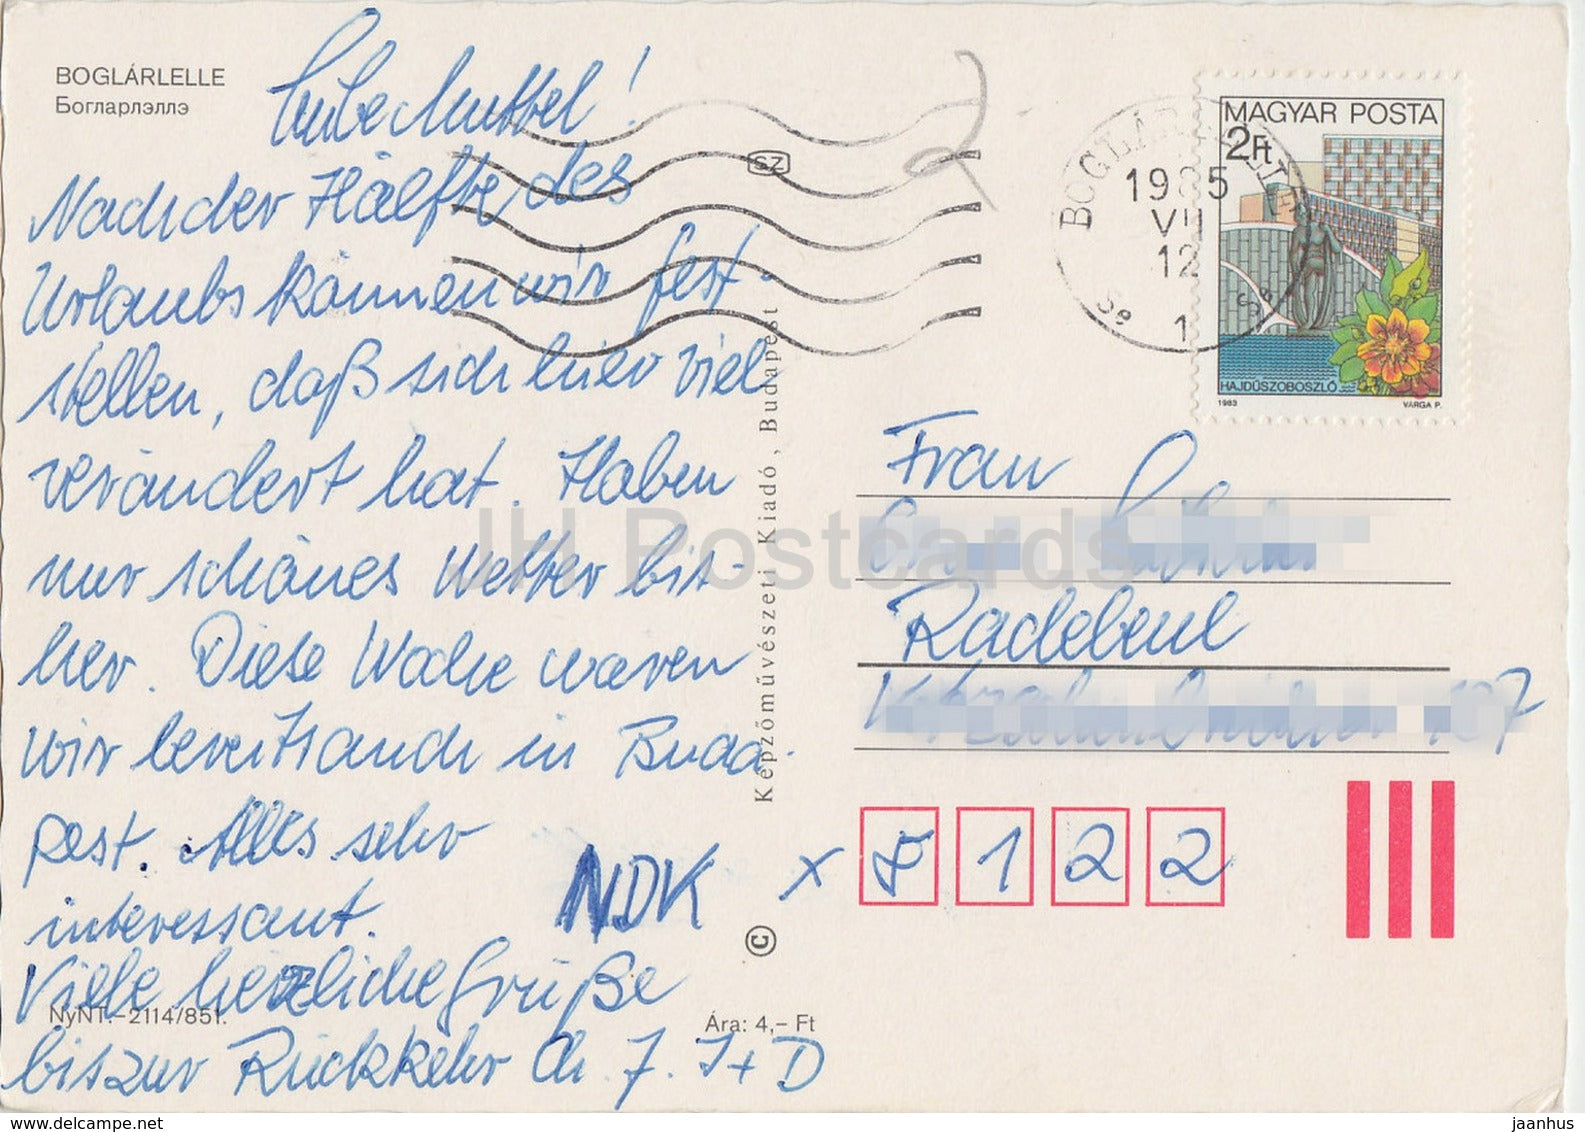 BOGLÁRLELLE
Богларлэллэ
Liebe Muttel!
Nach der Hälfte des
Urlaubs können wir fest-
stellen, daß sich hier viel
verändert hat. Haben
nur schönes Wetter bis-
her. Diese Woche waren
wir bereits auch in Buda-
pest. Alles sehr
interessant.
Viele herzliche Grüße
bis zur Rückkehr Ch. J. J + D
NDK
NyNT.–2114/851.
Ára: 4,– Ft
Képzőművészeti Kiadó, Budapest
©
SZ
2
BOGLÁRLELLE
1985
VII
12
1
MAGYAR POSTA
2Ft
HAJDÚSZOBOSZLÓ
1983
VARGA P.
Frau
Radebeul
107
x 8122
JH Postcards
delcampe.net
jaanhus